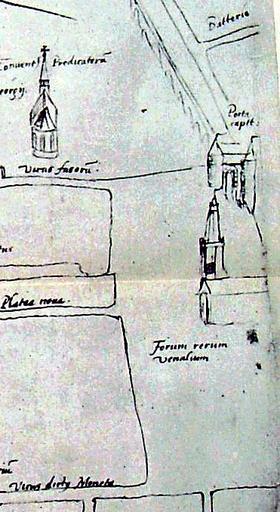 Batteria
Convent Predicatorũ
eorgy.
Porta
capit:
Vicus fusorũ
Platea noua.
Forum rerum
venalium
Vicus dictg Moneta